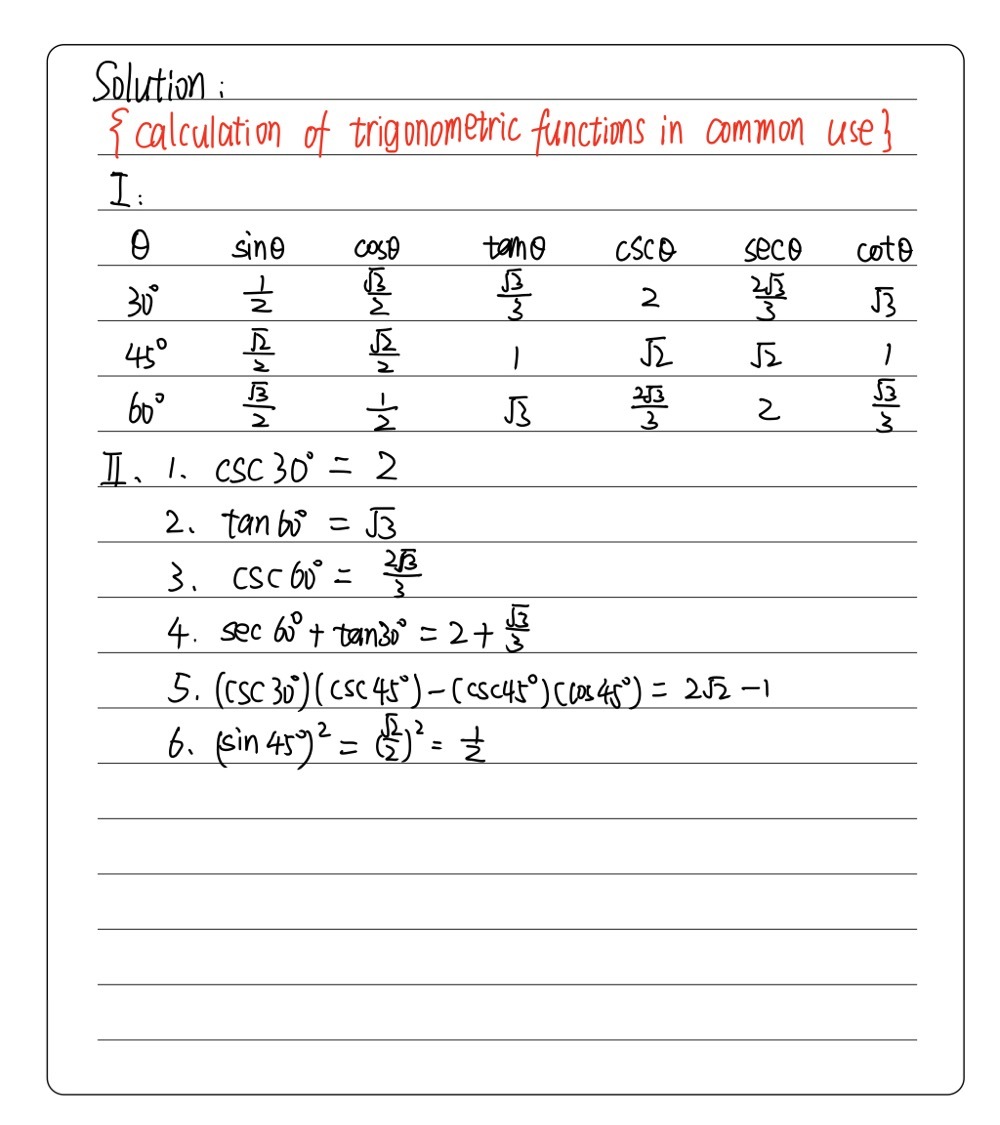 Solution:
{calculation of trigonometric functions in common use}
I:
θ sinθ cosθ tanθ cscθ secθ cotθ
30° 1/2 √3/2 √3/3 2 2√3/3 √3
45° √2/2 √2/2 1 √2 √2 1
60° √3/2 1/2 √3 2√3/3 2 √3/3
II. 1. csc30° = 2
2. tan60° = √3
3. csc60° = 2√3/3
4. sec60° + tan30° = 2 + √3/3
5. (csc30°)(csc45°) − (csc45°)(cos45°) = 2√2 − 1
6. (sin45°)² = (√2/2)² = 1/2